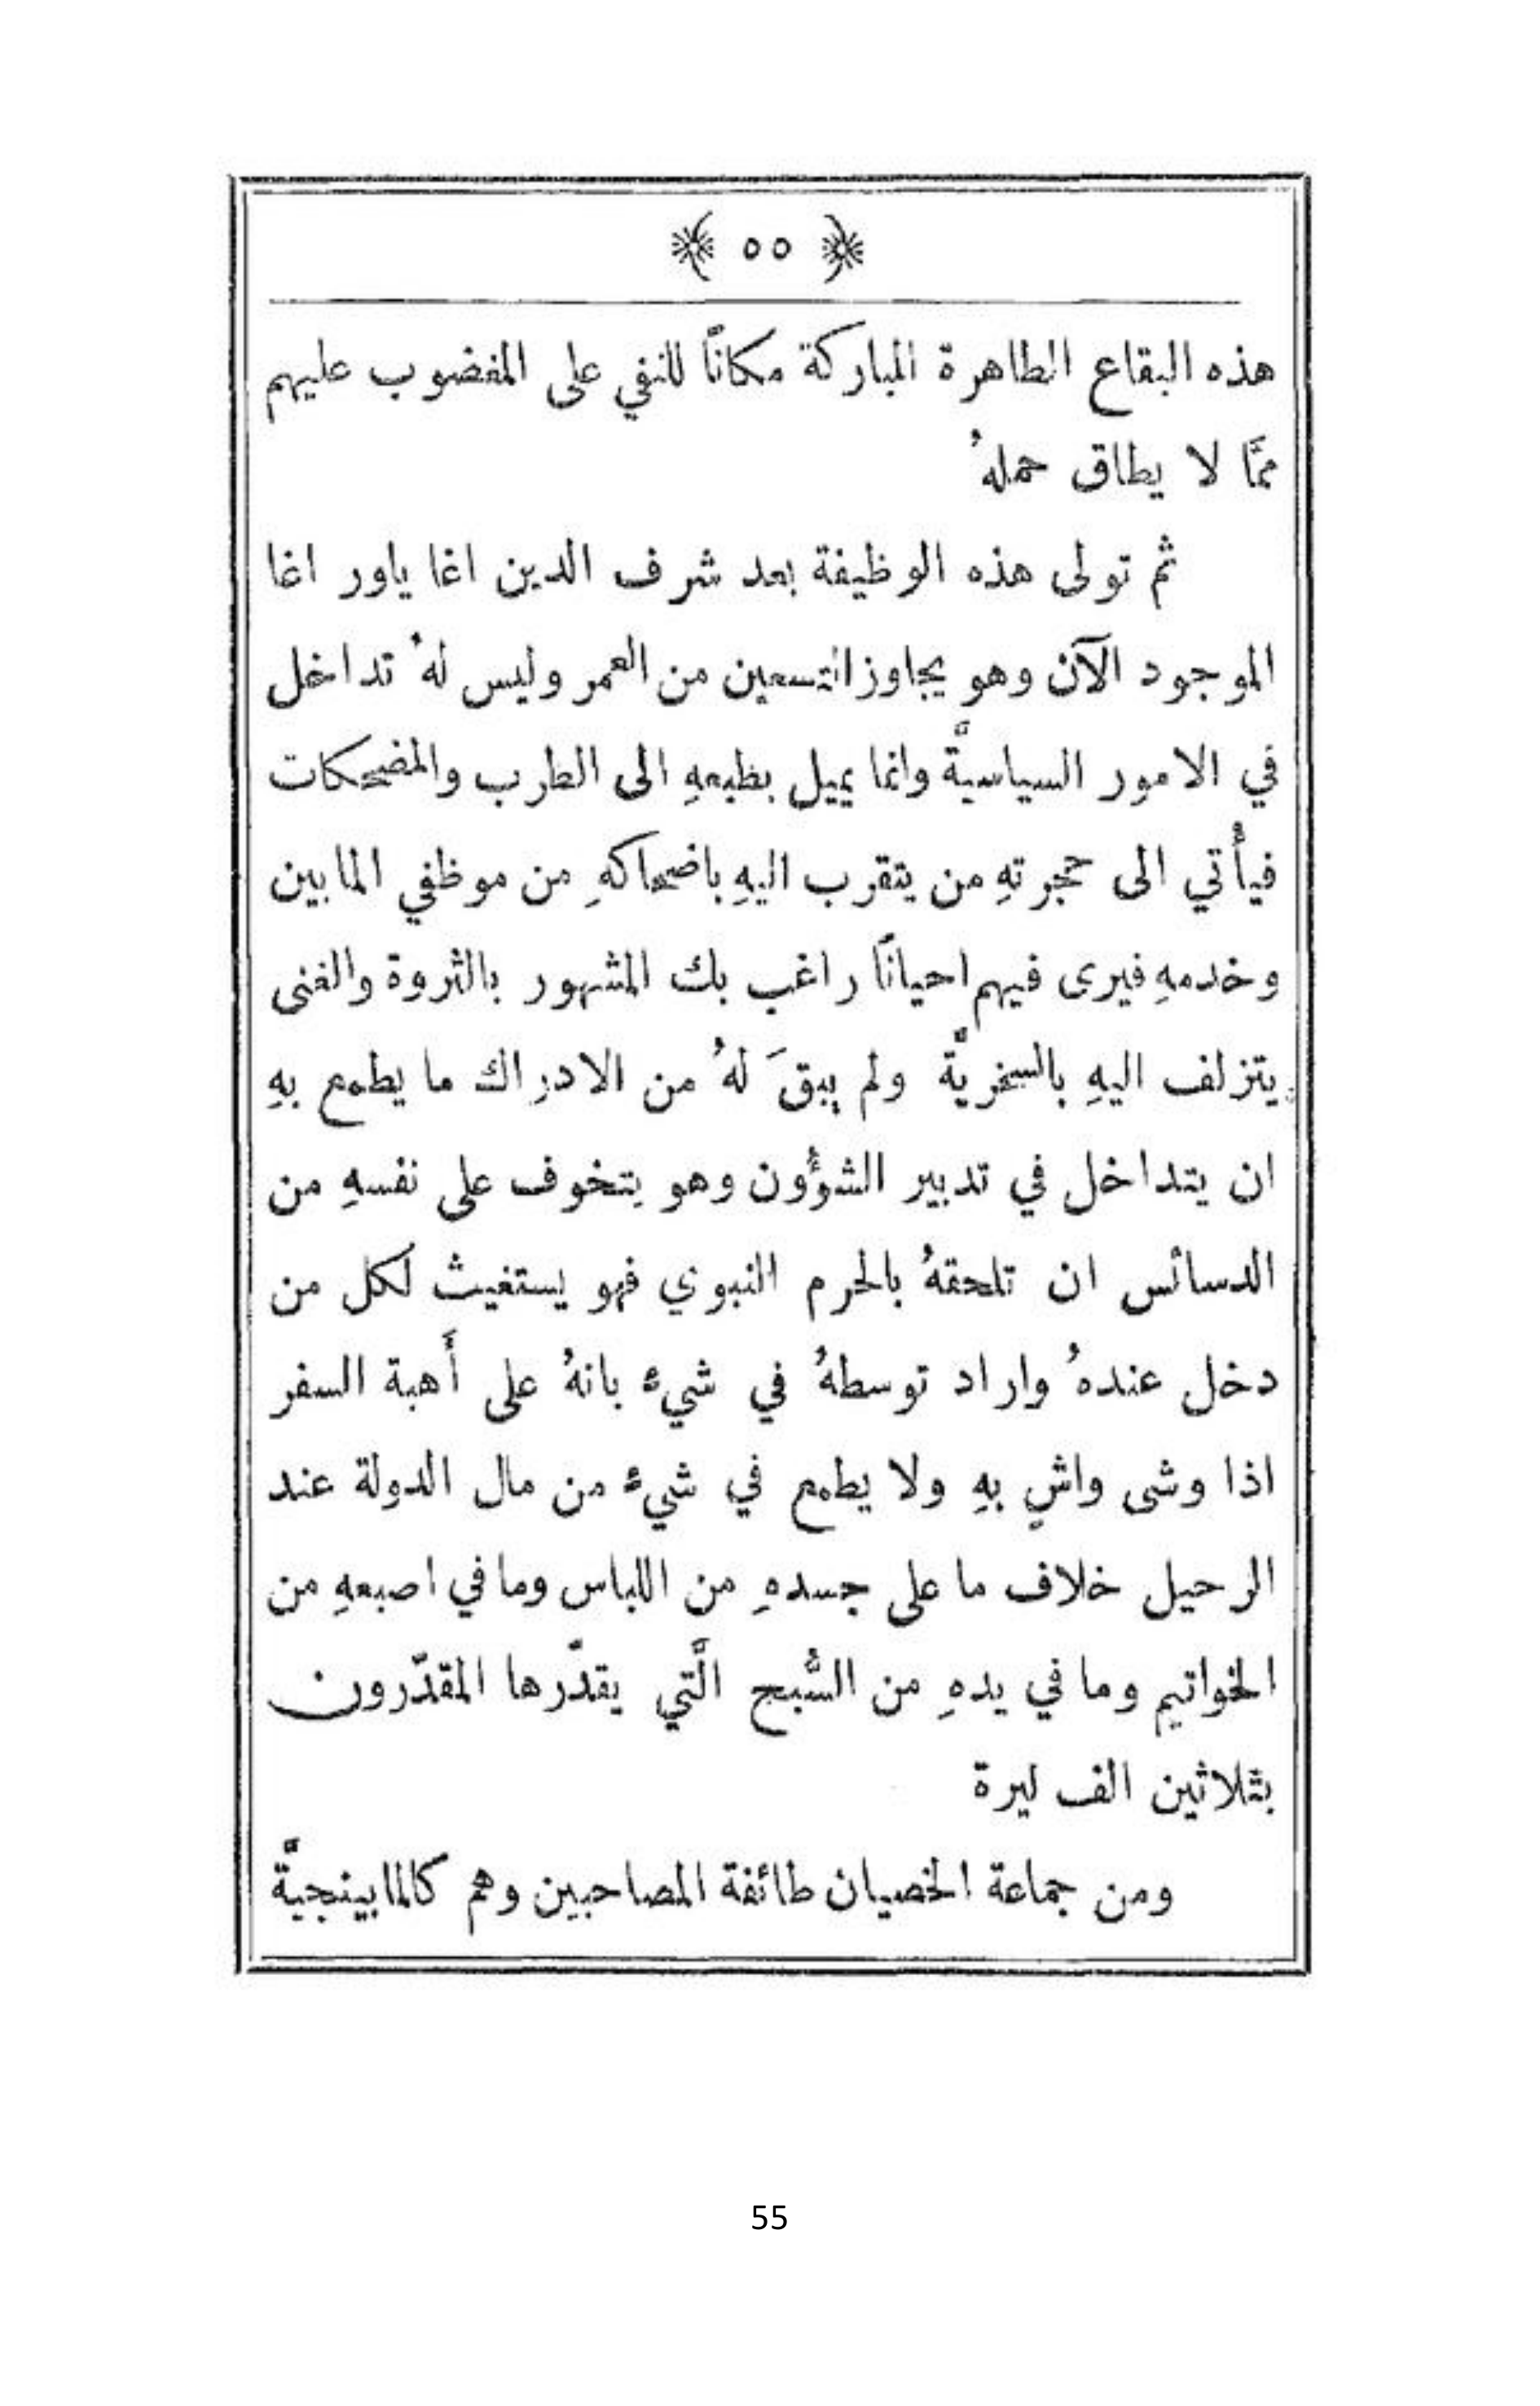 ﴿ ٥٥ ﴾
هذه البقاع الطاهرة المباركة مكانًا للنفي على المغضوب عليهم
ممَّا لا يطاق حملهُ
ثم تولى هذه الوظيفة بعد شرف الدين اغا ياور اغا
الموجود الآن وهو يجاوز التسعين من العمر وليس لهُ تداخل
في الامور السياسيَّة وانما يميل بطبعهِ الى الطرب والمضحكات
فيأتي الى حجرتهِ من يتقرب اليهِ باضحاكهِ من موظفي المابين
وخدمهِ فيرى فيهم احيانًا راغب بك المشهور بالثروة والغنى
يتزلف اليهِ بالسخريَّة ولم يبقَ لهُ من الادراك ما يطمع بهِ
ان يتداخل في تدبير الشؤُون وهو يتخوف على نفسهِ من
الدسائس ان تلحقهُ بالحرم النبوي فهو يستغيث لكل من
دخل عندهُ واراد توسطهُ في شيء بانهُ على أَهبة السفر
اذا وشى واشٍ بهِ ولا يطمع في شيء من مال الدولة عند
الرحيل خلاف ما على جسدهِ من اللباس وما في اصبعهِ من
الخواتيم وما في يدهِ من السُّبح الَّتي يقدّرها المقدّرون
بثلاثين الف ليرة
ومن جماعة الخصيان طائفة المصاحبين وهم كالمابينجيَّة
55